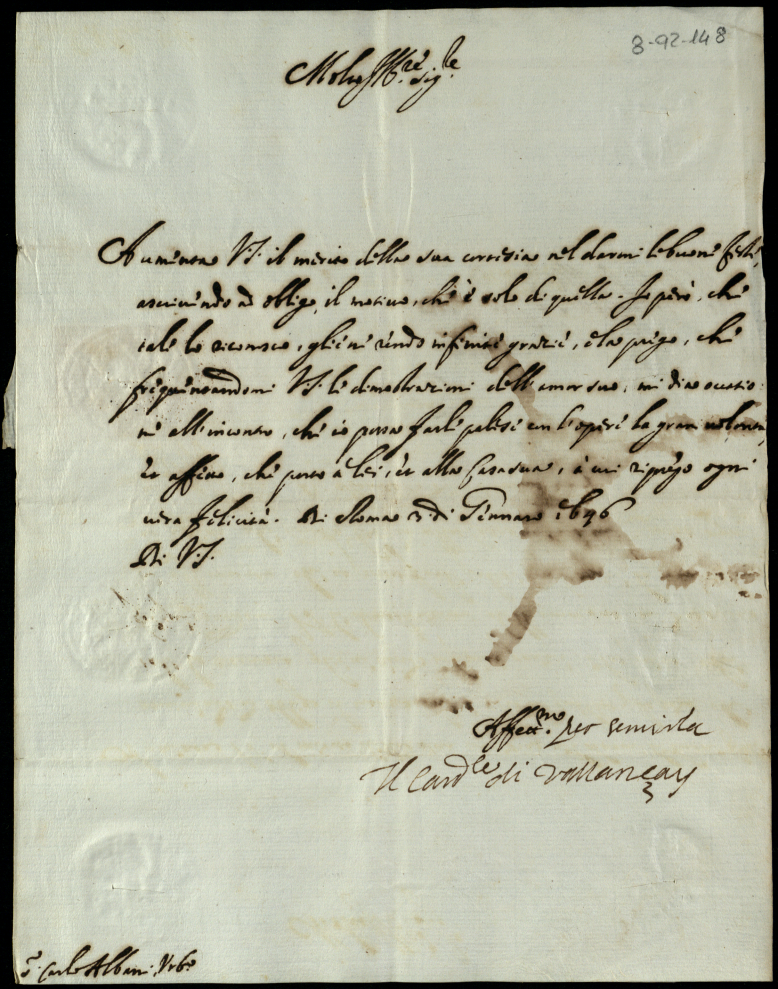 3-92-148
Molto Ill.re Sig.re
Aumenta V.S. il merito della sua cortesia nel darmi le buone feste,
ascrivendo ad obligo il motivo, che è solo di quella. Io però, che
tale lo riconosco, gliene rendo infinite grazie, e la prego, che
frequentandomi V.S. le dimostrazioni dell'amor suo, mi dia occasio
ne all'incontro, che io possa farle palesi con l'opere la gran volontà,
et affetto, che porto a lei, et alla Casa sua, a cui prego ogni
vera felicità. Di Roma 3 di Gennaro 1646
Di V.S.
Affett.mo per servirla
Il Card.le di Vallançay
S. Carlo Albani Urb.o